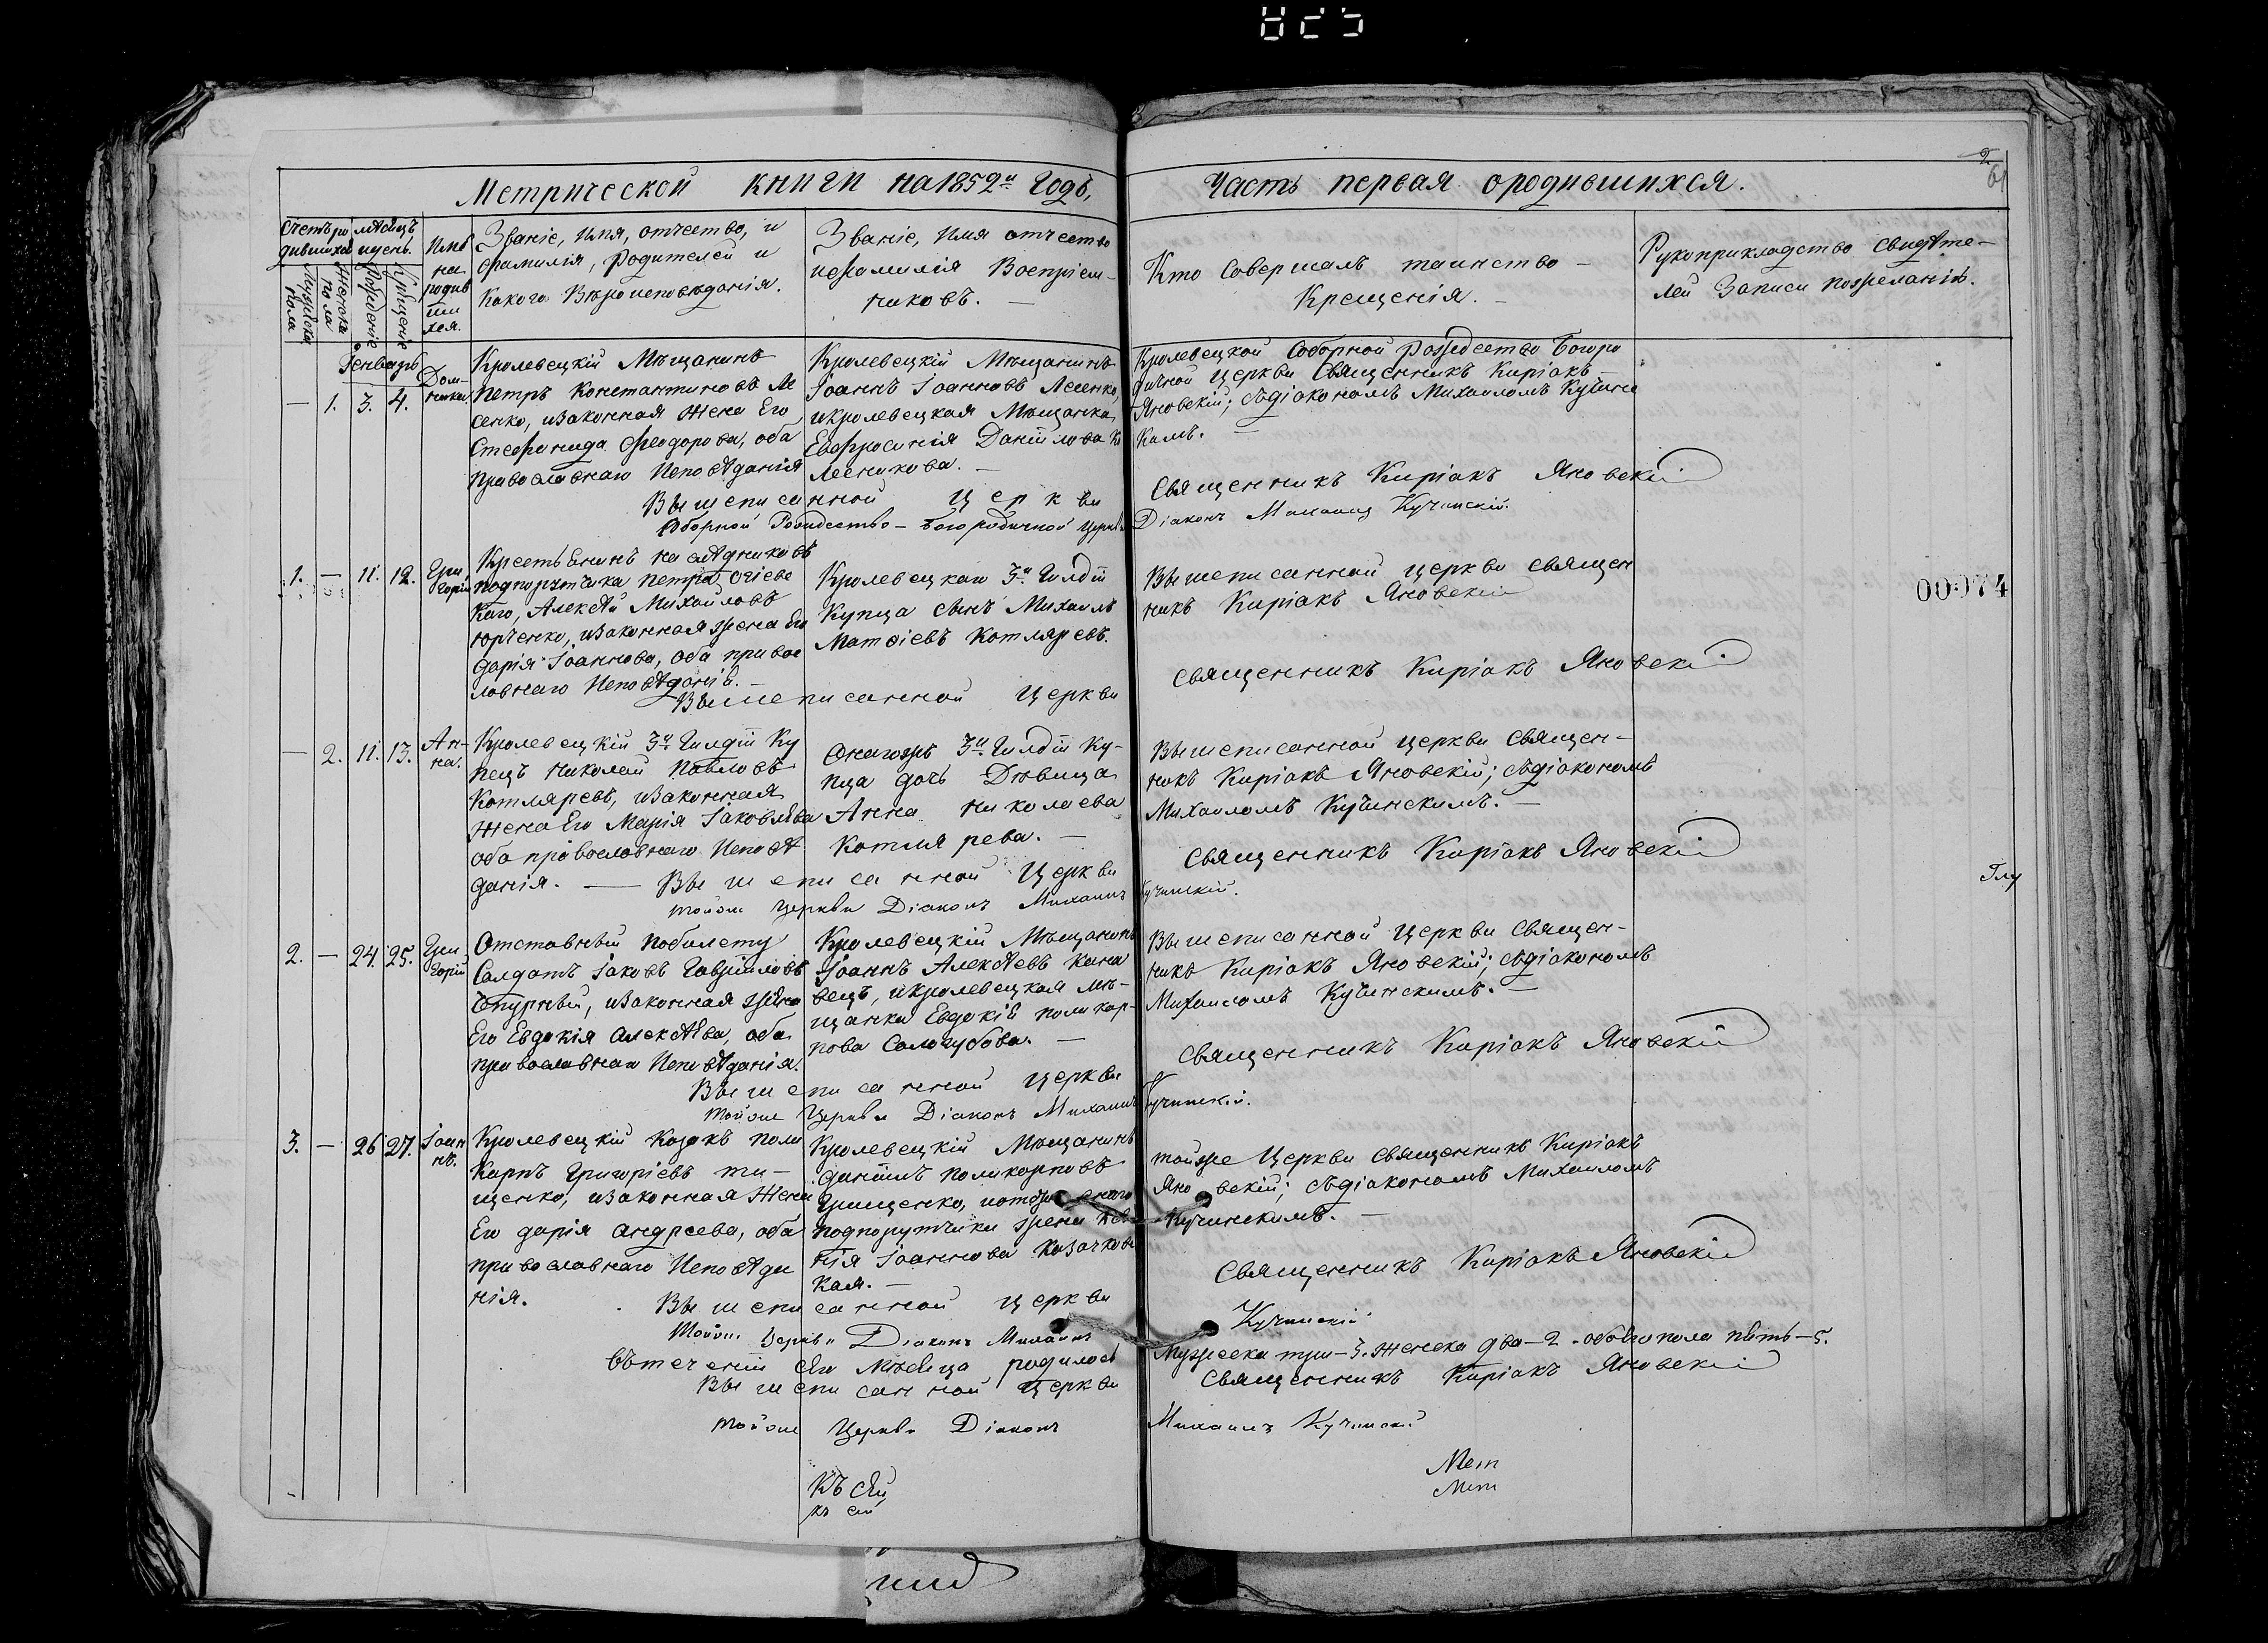 2
61
Метрической книги на 1852й Годъ,
Часть первая ородившихся.
Счетъ ро
дившихся
мѣсяцъ
идень.
Имѣ
на
родив
ши
хся.
Мужеска
пола
Женска
пола
Рожденіе
Крещеніе
Званіе, имя, отчество, и
фамилія, родителей и
Какого Вѣроисповѣданія.
Званіе, имя отчество
ифамилія Воспріем-
никовъ. —
Кто совершалъ таинство –
Крещенія. –
Рукоприкладство свидѣте-
лей Записи пожеланію.
Генварь
— 1. 3. 4.
Дом-
ника
Кролевецкій Мѣщанинъ
Петръ Константиновъ Ле
сенко, изаконная жена Его
Стефанида Феодорова, оба
православнаго Исповѣданія
Кролевецкій Мѣщанинъ
Іоаннъ Іоанновъ Лесенко,
икролевецкая Мѣщанка
Евфросинія Даніилова Ко
лесникова. —
Кролевецкой Соборной Рождество Богоро
дичной церкви Священникъ Киріакъ –
Яновскій; съдіакономъ Михаиломъ Кучинс
кимъ. —
Вышеписанной церкви
Священникъ Киріакъ Яновскій
Соборной Рождество – Богородичной церкви
Діаконъ Михаилъ Кучинскій.
1. — 11. 12.
Гри
горій
Крестьенинъ наслѣдниковъ
подпорутчика Петра
каго, Алексѣй Михайловъ
Юрченко, изаконная жена Его
Дарія Іоаннова, оба правос
лавнаго Исповѣданія. –
Кролевецкаго 3й Гилдіи
Купца сынъ Михаилъ
Матѳіевъ Котляревъ.
Вышеписанной церкви священ
никъ Киріакъ Яновскій
Вышеписанной церкви
Священникъ Киріакъ Яновскій
00074
— 2. 11. 13.
Ан-
на.
Кролевецкій 3й Гилдіи Ку
пецъ Николай Павловъ
Котляревъ, изаконная
жена Его Марія Іаковлѣва
оба православнаго Исповѣ
данія. —
Онагожъ 3й Гилдіи Ку-
пца дочь Дѣвица
Анна Николаева
Котлярева. —
Вышеписанной церкви Священ-
никъ Киріакъ Яновскій; съдіакономъ
Михаиломъ Кучинскимъ. —
Вышеписанной церкви
Священникъ Киріакъ Яновскій
тойже Церкви Діаконъ Михаилъ Кучинскій.
Глу
2. — 24. 25.
Гри
горій
Отставный побилету
Салдатъ Іаковъ Гавріиловъ
Чпурный, изаконная жена
Его Евдокія Алексѣева, оба
православнаго Исповѣданія.
Кролевецкій Мѣщанинъ
Іоаннъ Алексѣевъ Кана
вецъ, икролевецкая мѣ-
щанка Евдокія поликар-
пова Сологубова. —
Вышеписанной церкви Священ-
никъ Киріакъ Яновскій; съдіакономъ
Михаиломъ Кучинскимъ. —
Вышеписанной церкви
Священникъ Киріакъ Яновскій
тойже Церкви Діаконъ Михаилъ Кучинскій.
3. — 26 27.
Іоан
нъ.
Кролевецкій Козакъ поли
карпъ Григоріевъ ти-
щенко, изаконная жена
Его дарія андреева, оба
православнаго Исповѣда
нія.
Кролевецкій Мѣщанинъ
даніилъ поликарповъ
Грищенко,
подпорутчика жена
нія Іоаннова Казачков
кая. —
тойже Церкви священникъ Киріакъ
Яновскій; съдіакономъ Михаиломъ
Кучинскимъ. —
Вышеписанной церкви
Священникъ Киріакъ Яновскій
Тойже Церкви Діаконъ Михаилъ
Кучинскій
Втеченіи сего Мѣсяца родилось
Мужеска три – 3. женска два – 2. обоего пола пять – 5.
Вышеписанной Церкви
Священникъ Киріакъ Яновскій
Тойже Церкви Діаконъ
Михаилъ Кучинскій
Къ сей
къ сей
Мет
Мет